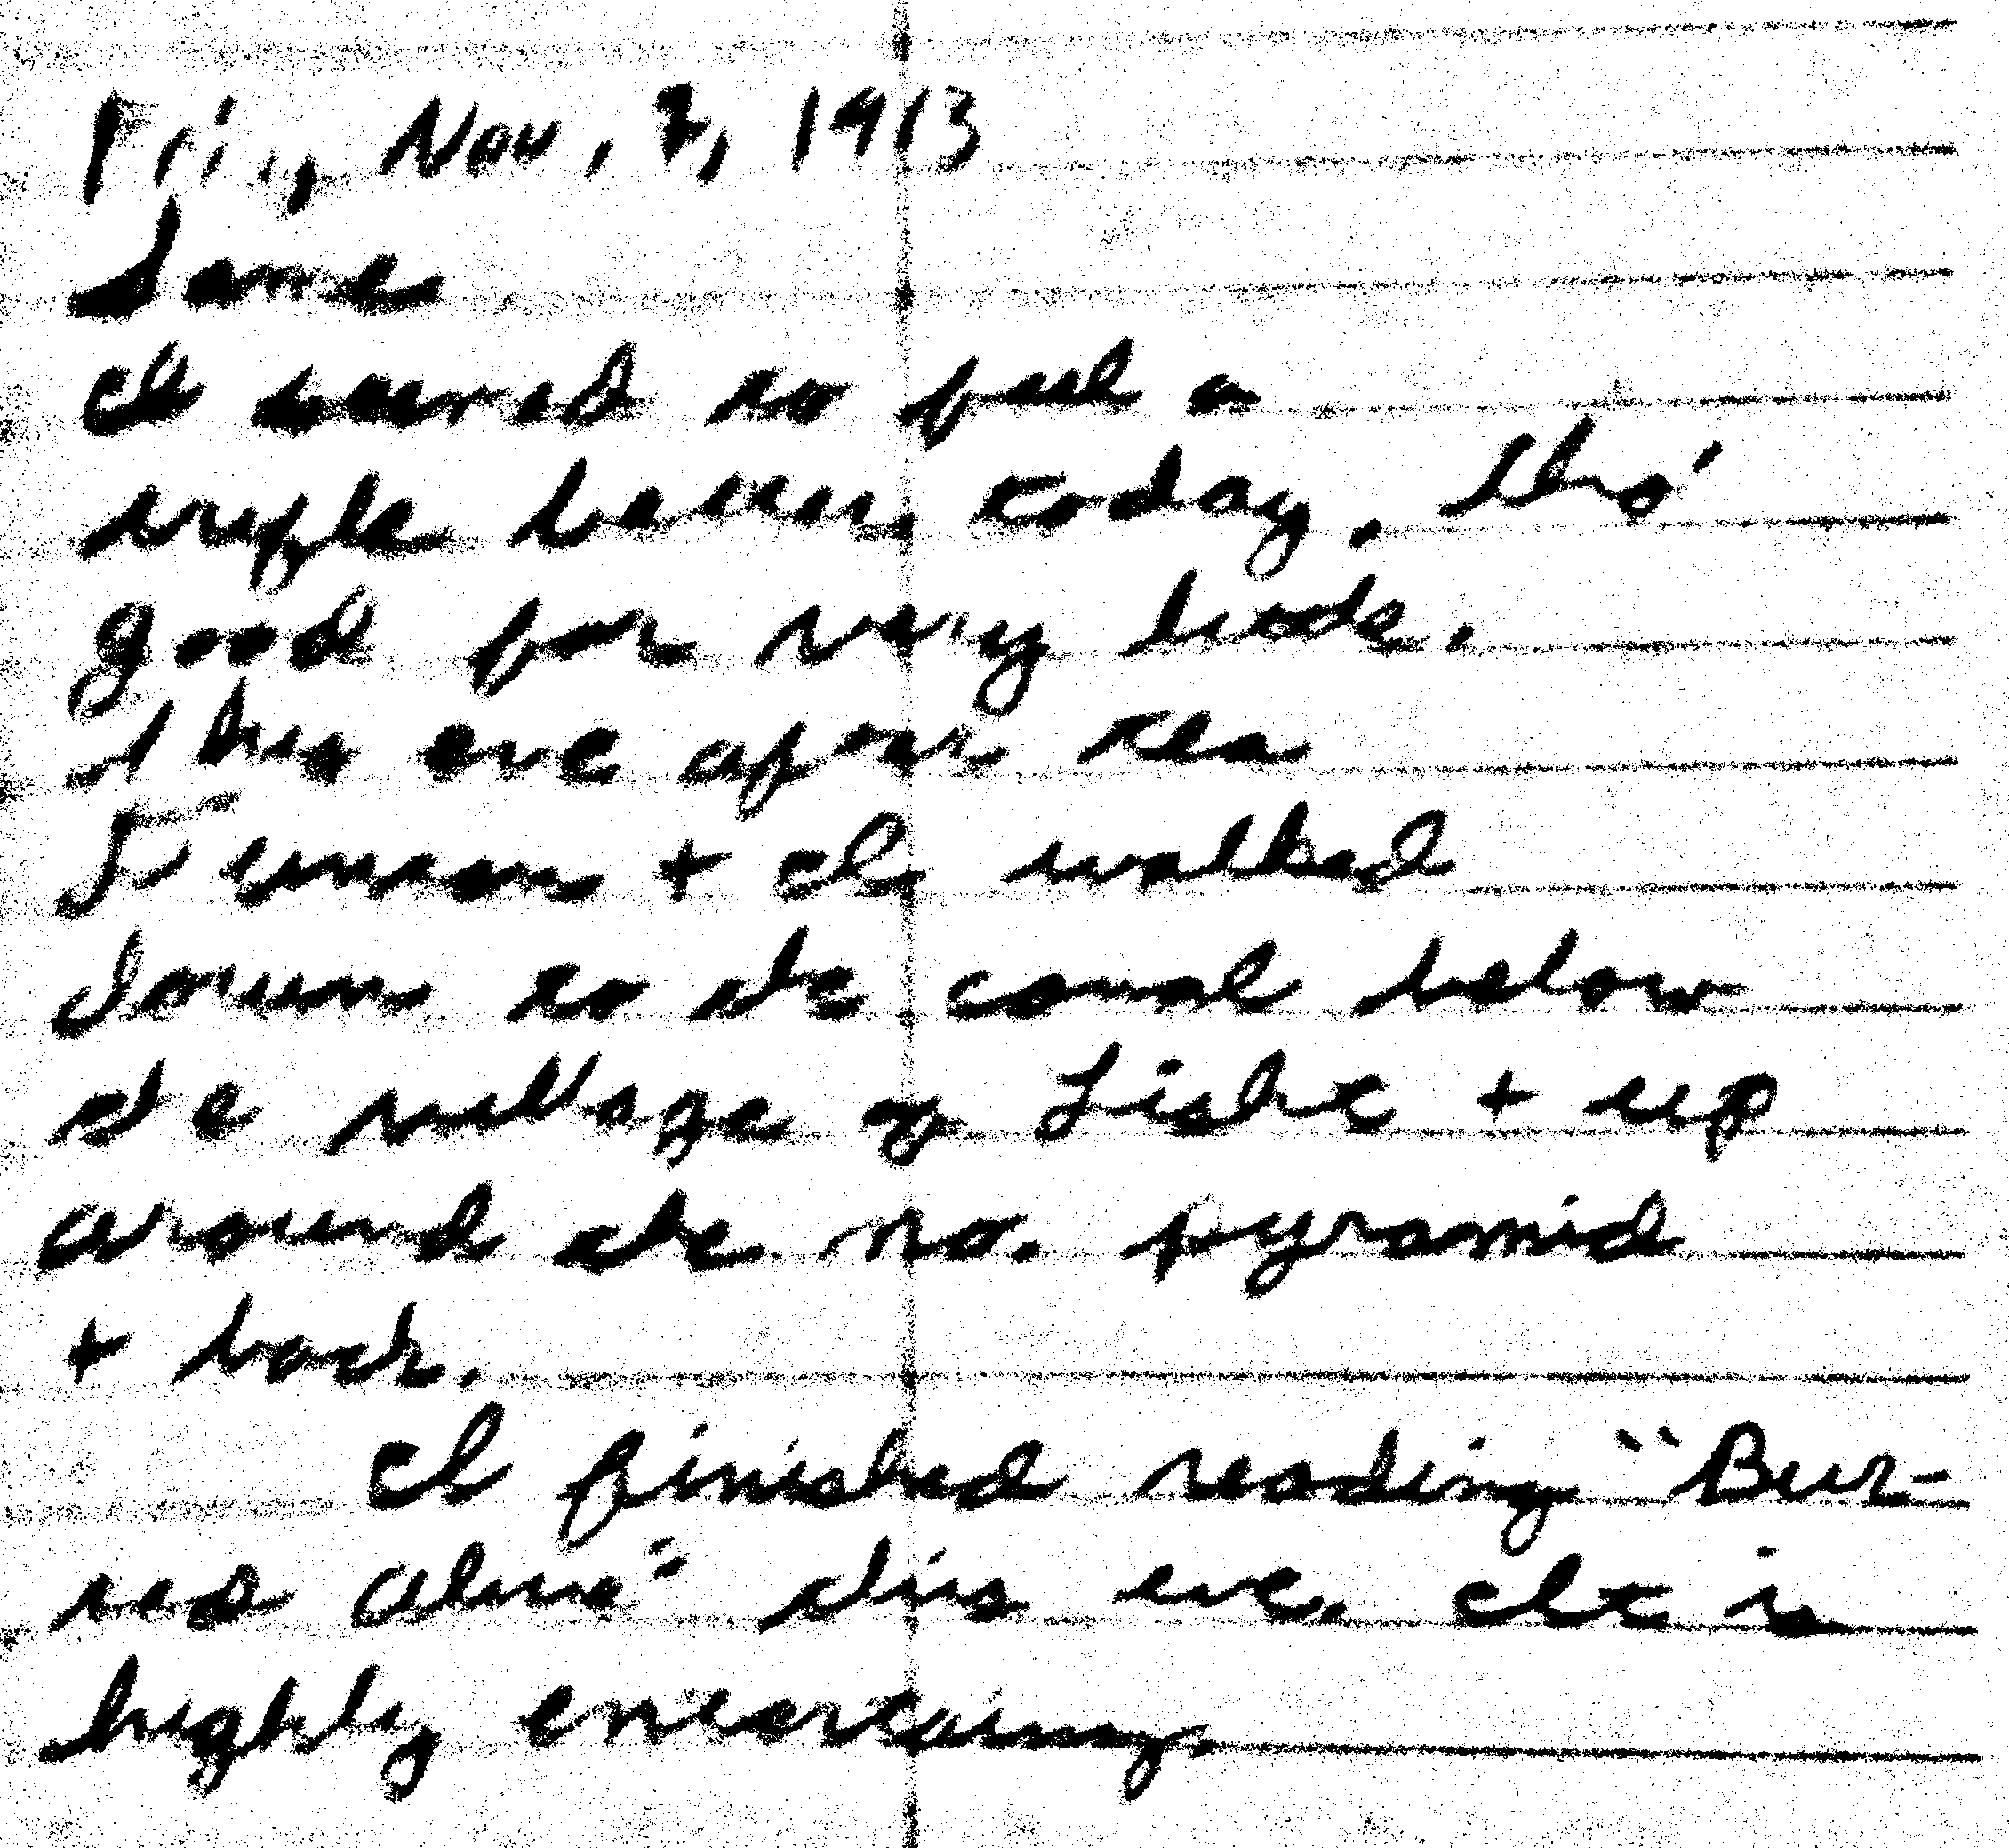 Fri., Nov. 7, 1913
Same
I seemed to feel a
trifle better today, tho'
good for very little.
This eve after tea
& I walked
down to the canal below
the village of Lisht + up
around the no. pyramid
+ back.
I finished reading "Bur-
ied Alive" this eve. It is
highly entertaining.